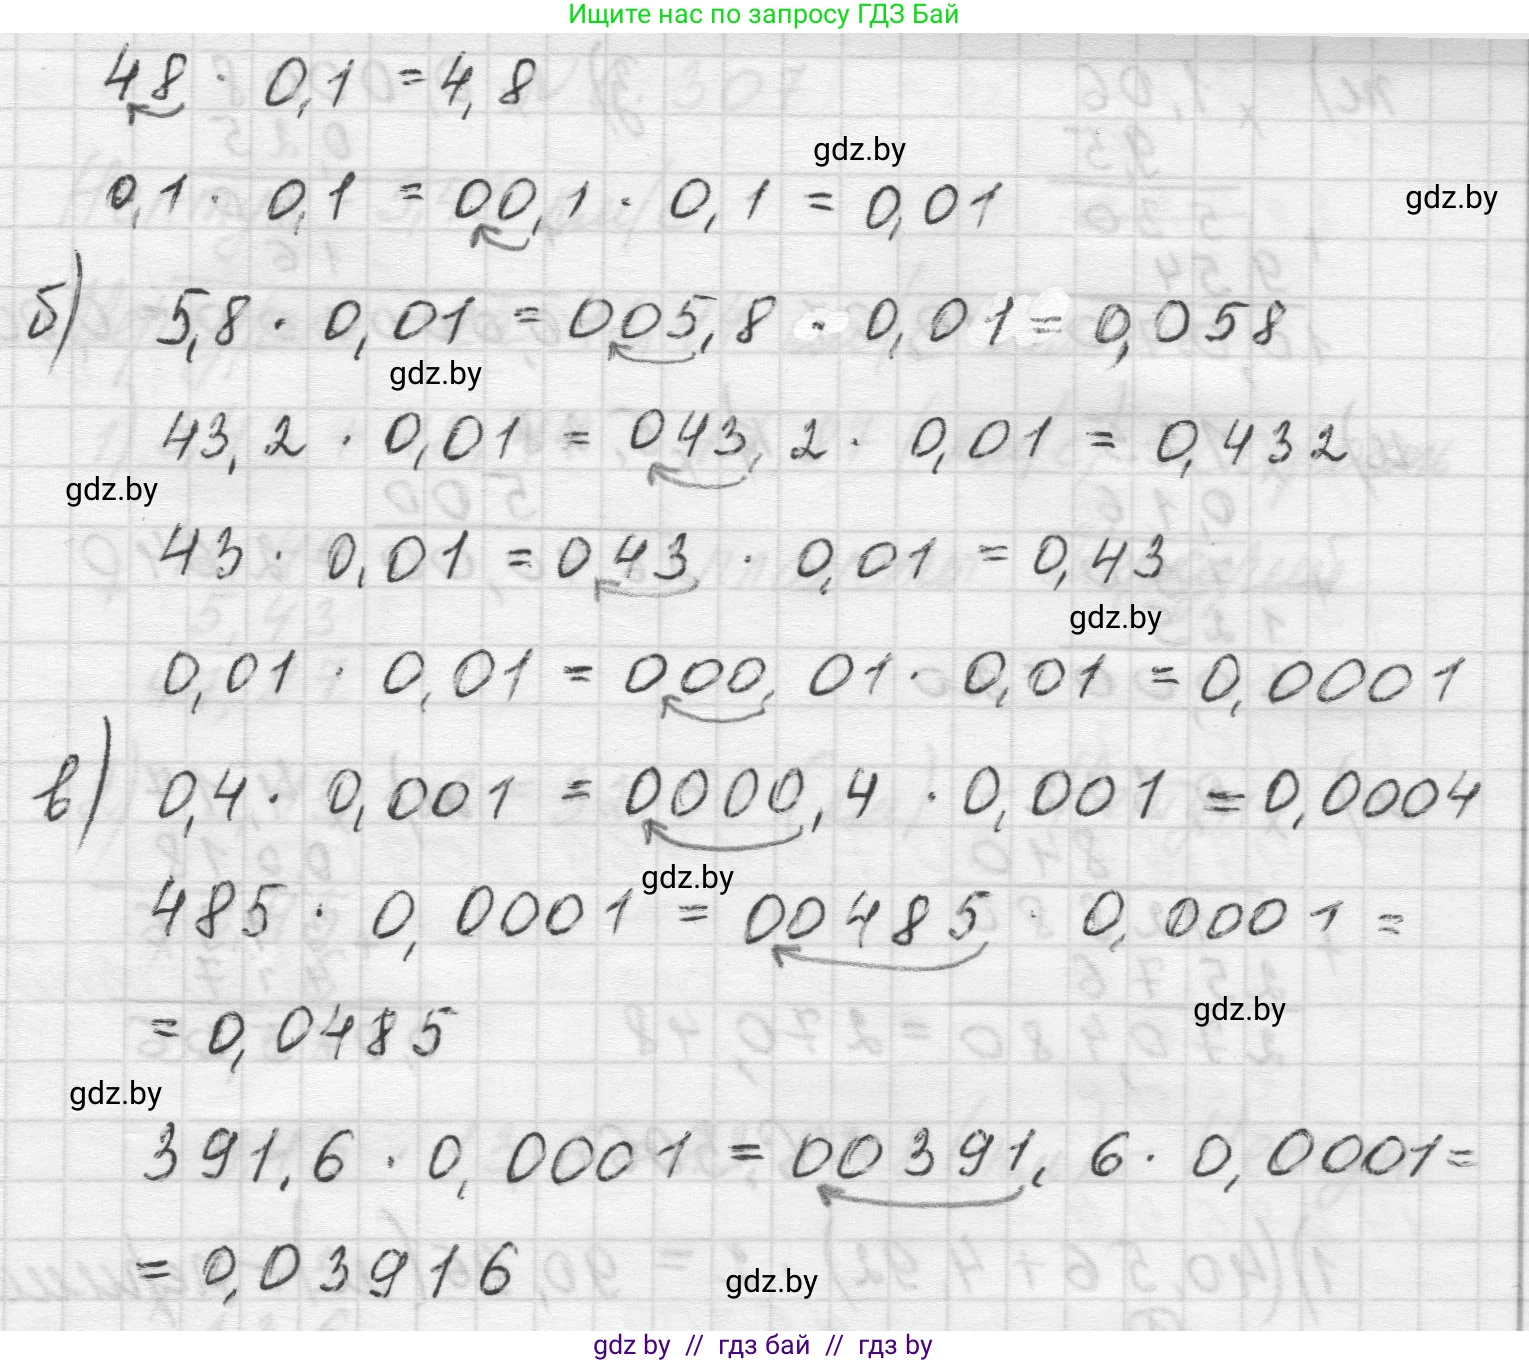 Ищите нас по запросу ГДЗ Бай
48 · 0,1 = 4,8
gdz.by
0,1 · 0,1 = 00,1 · 0,1 = 0,01
gdz.by
б) 5,8 · 0,01 = 005,8 · 0,01 = 0,058
gdz.by
43,2 · 0,01 = 043,2 · 0,01 = 0,432
gdz.by
43 · 0,01 = 043 · 0,01 = 0,43
gdz.by
0,01 · 0,01 = 000,01 · 0,01 = 0,0001
в) 0,4 · 0,001 = 0000,4 · 0,001 = 0,0004
gdz.by
485 · 0,0001 = 00485 · 0,0001 =
gdz.by
= 0,0485
gdz.by
391,6 · 0,0001 = 00391,6 · 0,0001 =
= 0,03916
gdz.by
gdz by // гдз бай // гдз by